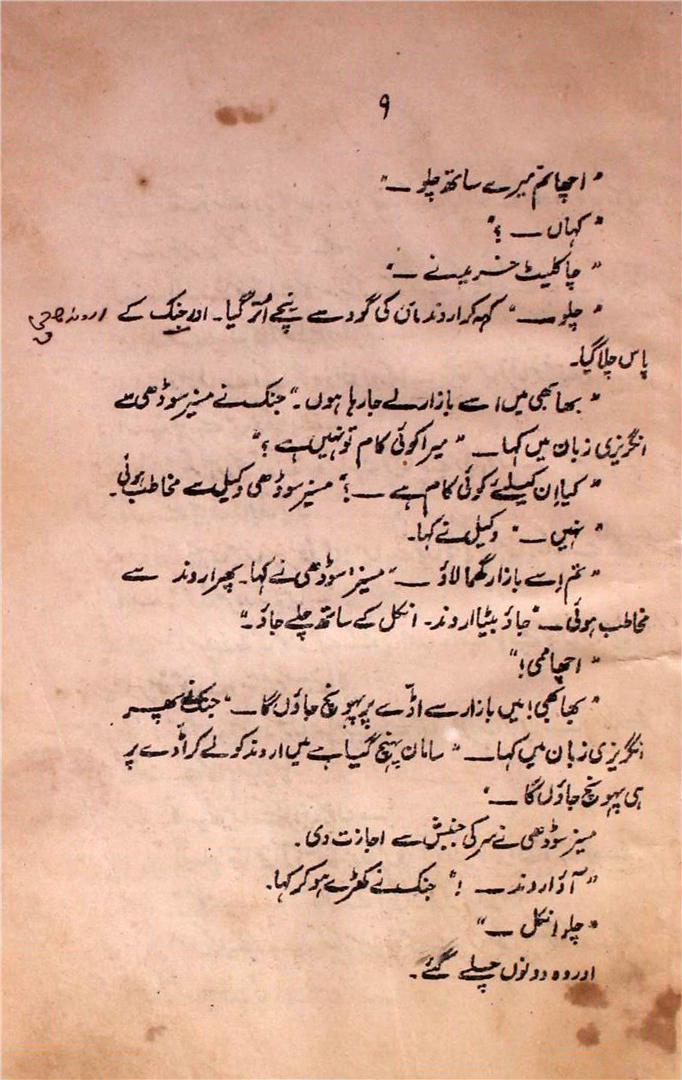 ۹
"اچھا تم میرے ساتھ چلو ــــ"
"کہاں ــــ؟"
"چاکلیٹ خریدنے ــــ"
"چلو ــــ" کہہ کر اروند ماں کی گود سے نیچے اُتر گیا۔ اور جنک کے
پاس چلا گیا۔
"بھابھی میں اسے بازار لے جا رہا ہوں۔" جنک نے مسیز سوڈھی سے
انگریزی زبان میں کہا ــــ "میرا کوئی کام تو نہیں ہے؟"
"کیا اِن کیلئے کوئی کام ہے ــــ؟" مسیز سوڈھی وکیل سے مخاطب ہوئی۔
"نہیں ــــ" وکیل نے کہا۔
"تم اِسے بازار گھما لاؤ ــــ" مسیز سوڈھی نے کہا۔ پھر اروند سے
مخاطب ہوئی ــــ "جاؤ بیٹا اروند۔ انکل کے ساتھ چلے جاؤ۔"
"اچھا ممی!"
"بھابھی! میں بازار سے اڈّے پر پہونچ جاؤں گا ــــ" جنک نے پھر
انگریزی زبان میں کہا ــــ "سامان پہنچ گیا ہے میں اروند کو لے کر اڈّے پر
ہی پہونچ جاؤں گا ــــ"
مسیز سوڈھی نے سر کی جنبش سے اجازت دی۔
"آؤ اروند ــــ!" جنک نے کھڑے ہو کر کہا۔
"چلو انکل ــــ"
اور وہ دونوں چلے گئے۔